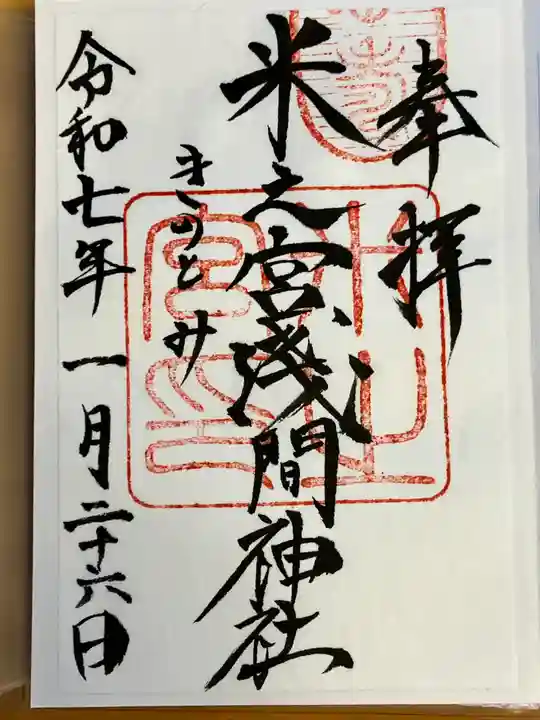 奉拝
米之宮浅間神社
きのとみ
令和七年一月二十六日